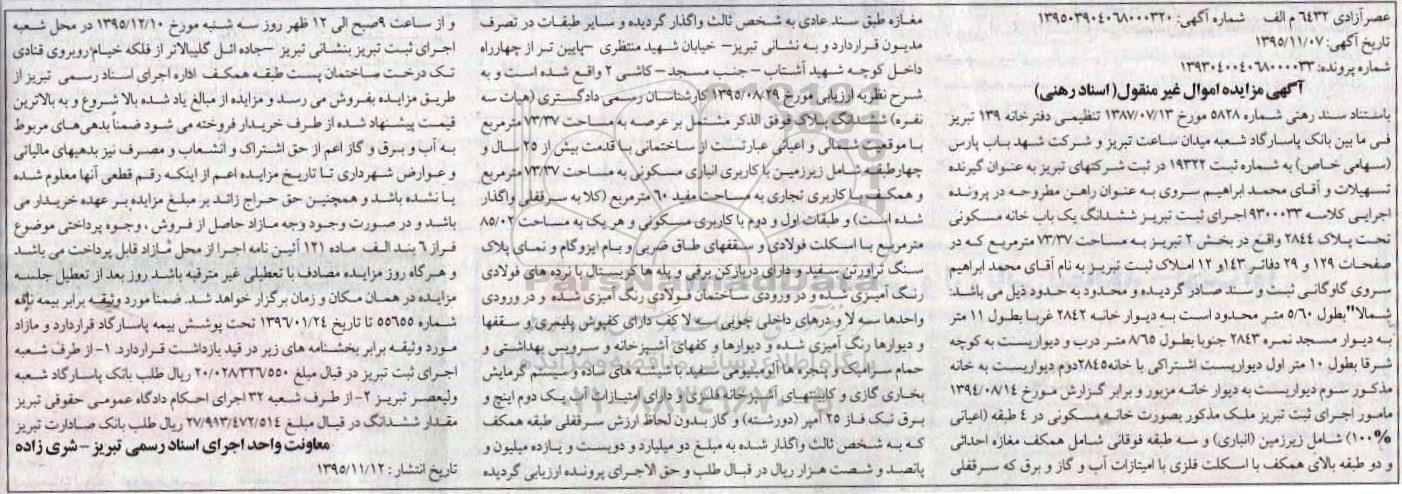 عصرآزادی ۶۴۳۲ م الف شماره آگهی: ۱۳۹۵۰۳۹۰۴۰۶۸۰۰۰۳۲۰
تاریخ آگهی: ۱۳۹۵/۱۱/۰۷
شماره پرونده: ۱۳۹۳۰۴۰۰۴۰۶۸۰۰۰۰۳۳
آگهی مزایده اموال غیر منقول( اسناد رهنی)
باستناد سند رهنی شماره ۵۸۲۸ مورخ ۱۳۸۷/۰۷/۱۳ تنظیمی دفترخانه ۱۳۹ تبریز
فی ما بین بانک پاسارگاد شعبه میدان ساعت تبریز و شرکت شهد باب پارس
(سهامی خاص) به شماره ثبت ۱۹۳۲۲ در ثبت شرکتهای تبریز به عنوان گیرنده
تسهیلات و آقای محمد ابراهیم سروی به عنوان راهن مطروحه در پرونده
اجرایی کلاسه ۹۳۰۰۰۳۳ اجرای ثبت تبریز ششدانگ یک باب خانه مسکونی
تحت پلاک ۲۸۴۴ واقع در بخش ۲ تبریز به مساحت ۷۳/۳۷ مترمربع که در
صفحات ۱۲۹ و ۲۹ دفاتر ۱۴۳و ۱۲ املاک ثبت تبریز به نام آقای محمد ابراهیم
سروی گاوگانی ثبت و سند صادر گردیده و محدود به حدود ذیل می باشد:
شمالا" بطول ۵/۶۰ متر محدود است به دیوار خانه ۲۸۴۲ غربا بطول ۱۱ متر
به دیوار مسجد نمره ۲۸۴۳ جنوبا بطول ۸/۶۵ متر درب و دیواریست به کوچه
شرقا بطول ۱۰ متر اول دیواریست اشتراکی با خانه۲۸۴۵دوم دیواریست به خانه
مذکور سوم دیواریست به دیوار خانه مزبور و برابر گزارش مورخ ۱۳۹۴/۰۸/۱۴
مامور اجرای ثبت تبریز ملک مذکور بصورت خانه مسکونی در ۴ طبقه (اعیانی
۱۰۰%) شامل زیرزمین (انباری) و سه طبقه فوقانی شامل همکف مغازه احداثی
و دو طبقه بالای همکف با اسکلت فلزی با امتیازات آب و گاز و برق که سرقفلی
مغازه طبق سند عادی به شخص ثالث واگذار گردیده و سایر طبقات در تصرف
مدیون قراردارد و به نشانی تبریز- خیابان شهید منتظری -پایین تر از چهارراه
داخل کوچه شهید آشتاب - جنب مسجد - کاشی ۲ واقع شده است و به
شرح نظریه ارزیابی مورخ ۱۳۹۵/۰۸/۲۹ کارشناسان رسمی دادگستری (هیات سه
نفره) ششدانگ پلاک فوفق الذکر مشتمل بر عرصه به مساحت ۷۳/۳۷ مترمربع
با موقعیت شمالی و اعیانی عبارتست از ساختمانی با قدمت بیش از ۲۵ سال و
چهارطبقه شامل زیرزمین با کاربری انباری مسکونی به مساحت ۷۳/۳۷ مترمربع
و همکف با کاربری تجاری به مساحت مفید ۶۰ مترمربع (کلا به سرقفلی واگذار
شده است) و طبقات اول و دوم با کاربری مسکونی و هر یک به مساحت ۸۵/۰۲
مترمربع با اسکلت فولادی و سقفهای طاق ضربی و بام ایزوگام و نمای پلاک
سنگ تراورتن سفید و دارای دربازکن برقی و پله ها کریستال با نرده های فولادی
رنگ آمیزی شده و در ورودی ساختمان فولادی رنگ آمیزی شده و در ورودی
واحدها سه لا و درهای داخلی چوبی سه لا کف دارای کفپوش پلیمری و سقفها
و دیوارها رنگ آمیزی شده و دیوارها و کفهای آشپزخانه و سرویس بهداشتی و
حمام سرامیک و پنجره ها آلومینیومی سفید با شیشه های ساده و سیستم گرمایش
بخاری گازی و کابینتهای آشپزخانه فلزی و دارای امتیازات آب یک دوم اینچ و
برق تک فاز ۲۵ آمپر (دورشته) و گاز بدون لحاظ ارزش سرقفلی طبقه همکف
که به شخص ثالث واگذار شده به مبلغ دو میلیارد و دویست و یازده میلیون و
پانصد و شصت هزار ریال در قبال طلب و حق الاجرای پرونده ارزیابی گردیده
و از ساعت ۹صبح الی ۱۲ ظهر روز سه شنبه مورخ ۱۳۹۵/۱۲/۱۰ در محل شعبه
اجرای ثبت تبریز بنشانی تبریز -جاده ائل گلیبالاتر از فلکه خیام-روبروی قنادی
تک درخت ساختمان پست طبقه همکف اداره اجرای اسناد رسمی تبریز از
طریق مزایده بفروش می رسد و مزایده از مبالغ یاد شده بالا شروع و به بالاترین
قیمت پیشنهاد شده از طرف خریدار فروخته می شود ضمناً بدهی های مربوط
به آب و برق و گاز اعم از حق اشتراک و انشعاب و مصرف نیز بدهیهای مالیاتی
و عوارض شهرداری تا تاریخ مزایده اعم از اینکه رقم قطعی آنها معلوم شده
یا نشده باشد و همچنین حق حراج زائد بر مبلغ مزایده بر عهده خریدار می
باشد و در صورت وجود وجه مازاد حاصل از فروش ، وجوه پرداختی موضوع
فراز ۶ بند الف ماده (۱۲ آئین نامه اجرا از محل مازاد قابل پرداخت می باشد
و هرگاه روز مزایده مصادف با تعطیلی غیر مترقبه باشد روز بعد از تعطیل جلسه
مزایده در همان مکان و زمان برگزار خواهد شد. ضمنا مورد وثیقه برابر بیمه نامه
شماره ۵۵۶۵۵ تا تاریخ ۱۳۹۶/۰۱/۲۴ تحت پوشش بیمه پاسارگاد قراردارد و مازاد
مورد وثیقه برابر بخشنامه های زیر در قید بازداشت قراردارد. ۱- از طرف شعبه
اجرای ثبت تبریز در قبال مبلغ ۲۰/۰۲۸/۳۲۶/۵۵۰ ریال طلب بانک پاسارگاد شعبه
ولیعصر تبریز ۲- از طرف شعبه ۳۲ اجرای احکام دادگاه عمومی حقوقی تبریز
مقدار ششدانگ در قبال مبلغ ۲۷/۹۱۳/۴۷۲/۵۱۴ ریال طلب بانک صادارت تبریز
معاونت واحد اجرای اسناد رسمی تبریز - شری زاده
تاریخ انتشار: ۱۳۹۵/۱۱/۱۲
ParsNamadData